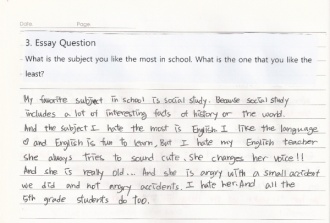 Date Page
3. Essay Question
- What is the subject you like the most in school. What is the one that you like the
least?
My favorite subject in school is social study. Because social study
includes a lot of interesting facts of history or the world.
And the subject I hate the most is English I like the language
and English is fun to learn, But I hate my English teacher
she always tries to sound cute. She changes her voice!!
And she is really old... And she is angry with a small accident
we did and not angry accidents. I hate her. And all the
5th grade students do too.